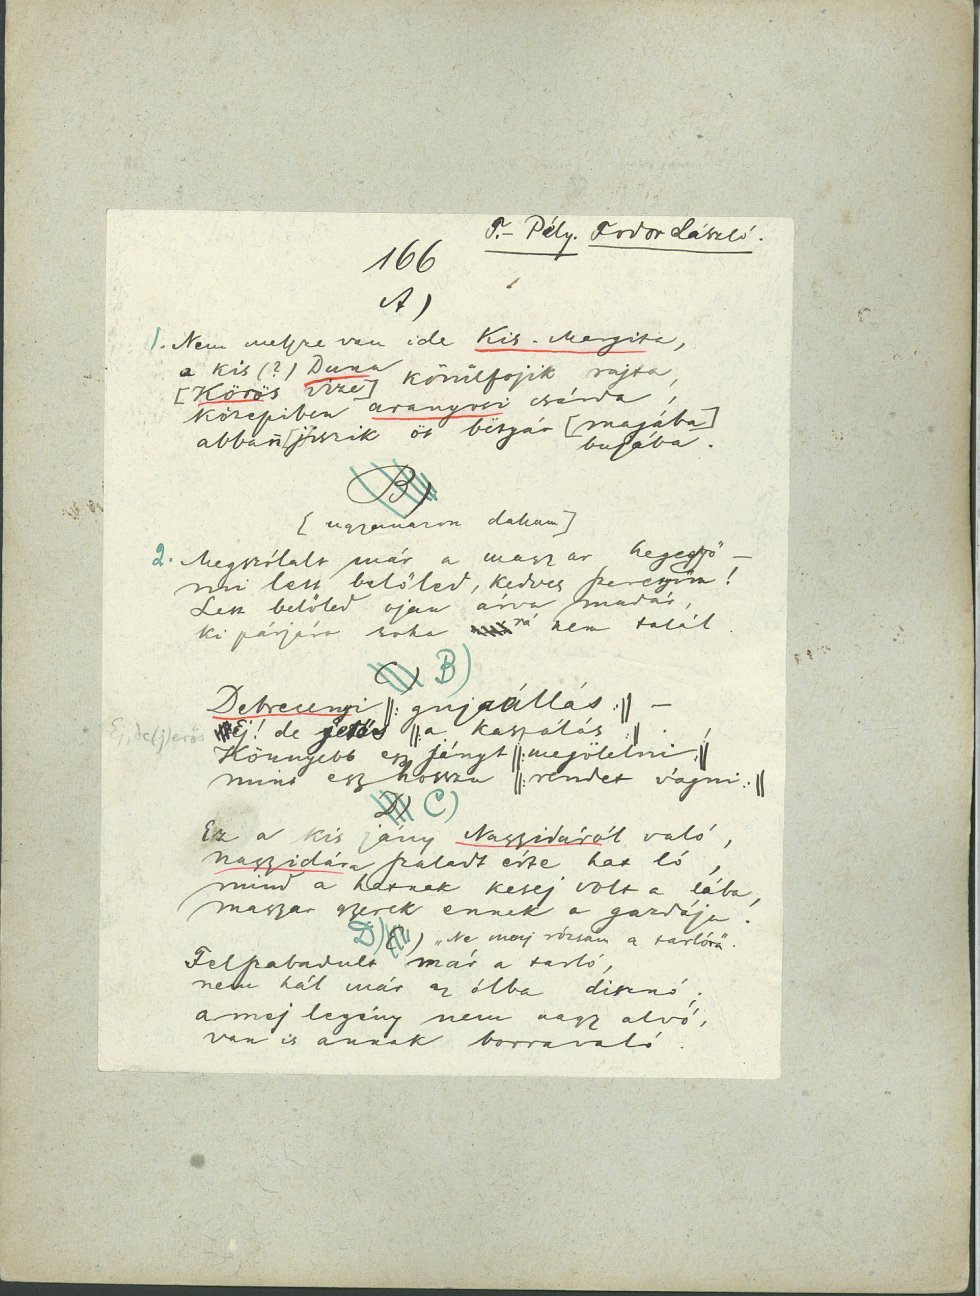 T.- Pély. Fodor László.
166
A)
1. Nem meszsze van ide Kis-Margita,
a kis (?) Duna
[Körös vize] körűlfojik rajta,
közepiben aranyosi csárda,
abban [j]iszik öt bëtyár [majába]
bujába.
B)
[ugyanazon dallam]
2. Megszólalt már a magyar hegedű —
mi lett belőled, kedves
Lett belőled ojan árva madár,
ki párjára soha rá nem talál.
C) B)
Debrecenyi ‖: gujaállás :‖ —
Ej! de jerős ‖: a kaszálás :‖,
Ej, de(j)erős
Könnyebb egy jányt ‖: megölelni :‖
mint egy hosszu ‖: rendet vágni :‖
D) C)
Ez a kis jány Nagyidáról való,
nagyidára szaladt érte hat ló,
mind a hatnak kesej volt a lába,
magyar gyerek ennek a gazdája.
D) C) „Ne menj rózsám a tarlóra".
Felszabadult már a tarló,
nem hál már az ólba disznó;
a mej legény nem nagy alvó,
van is annak borravaló.